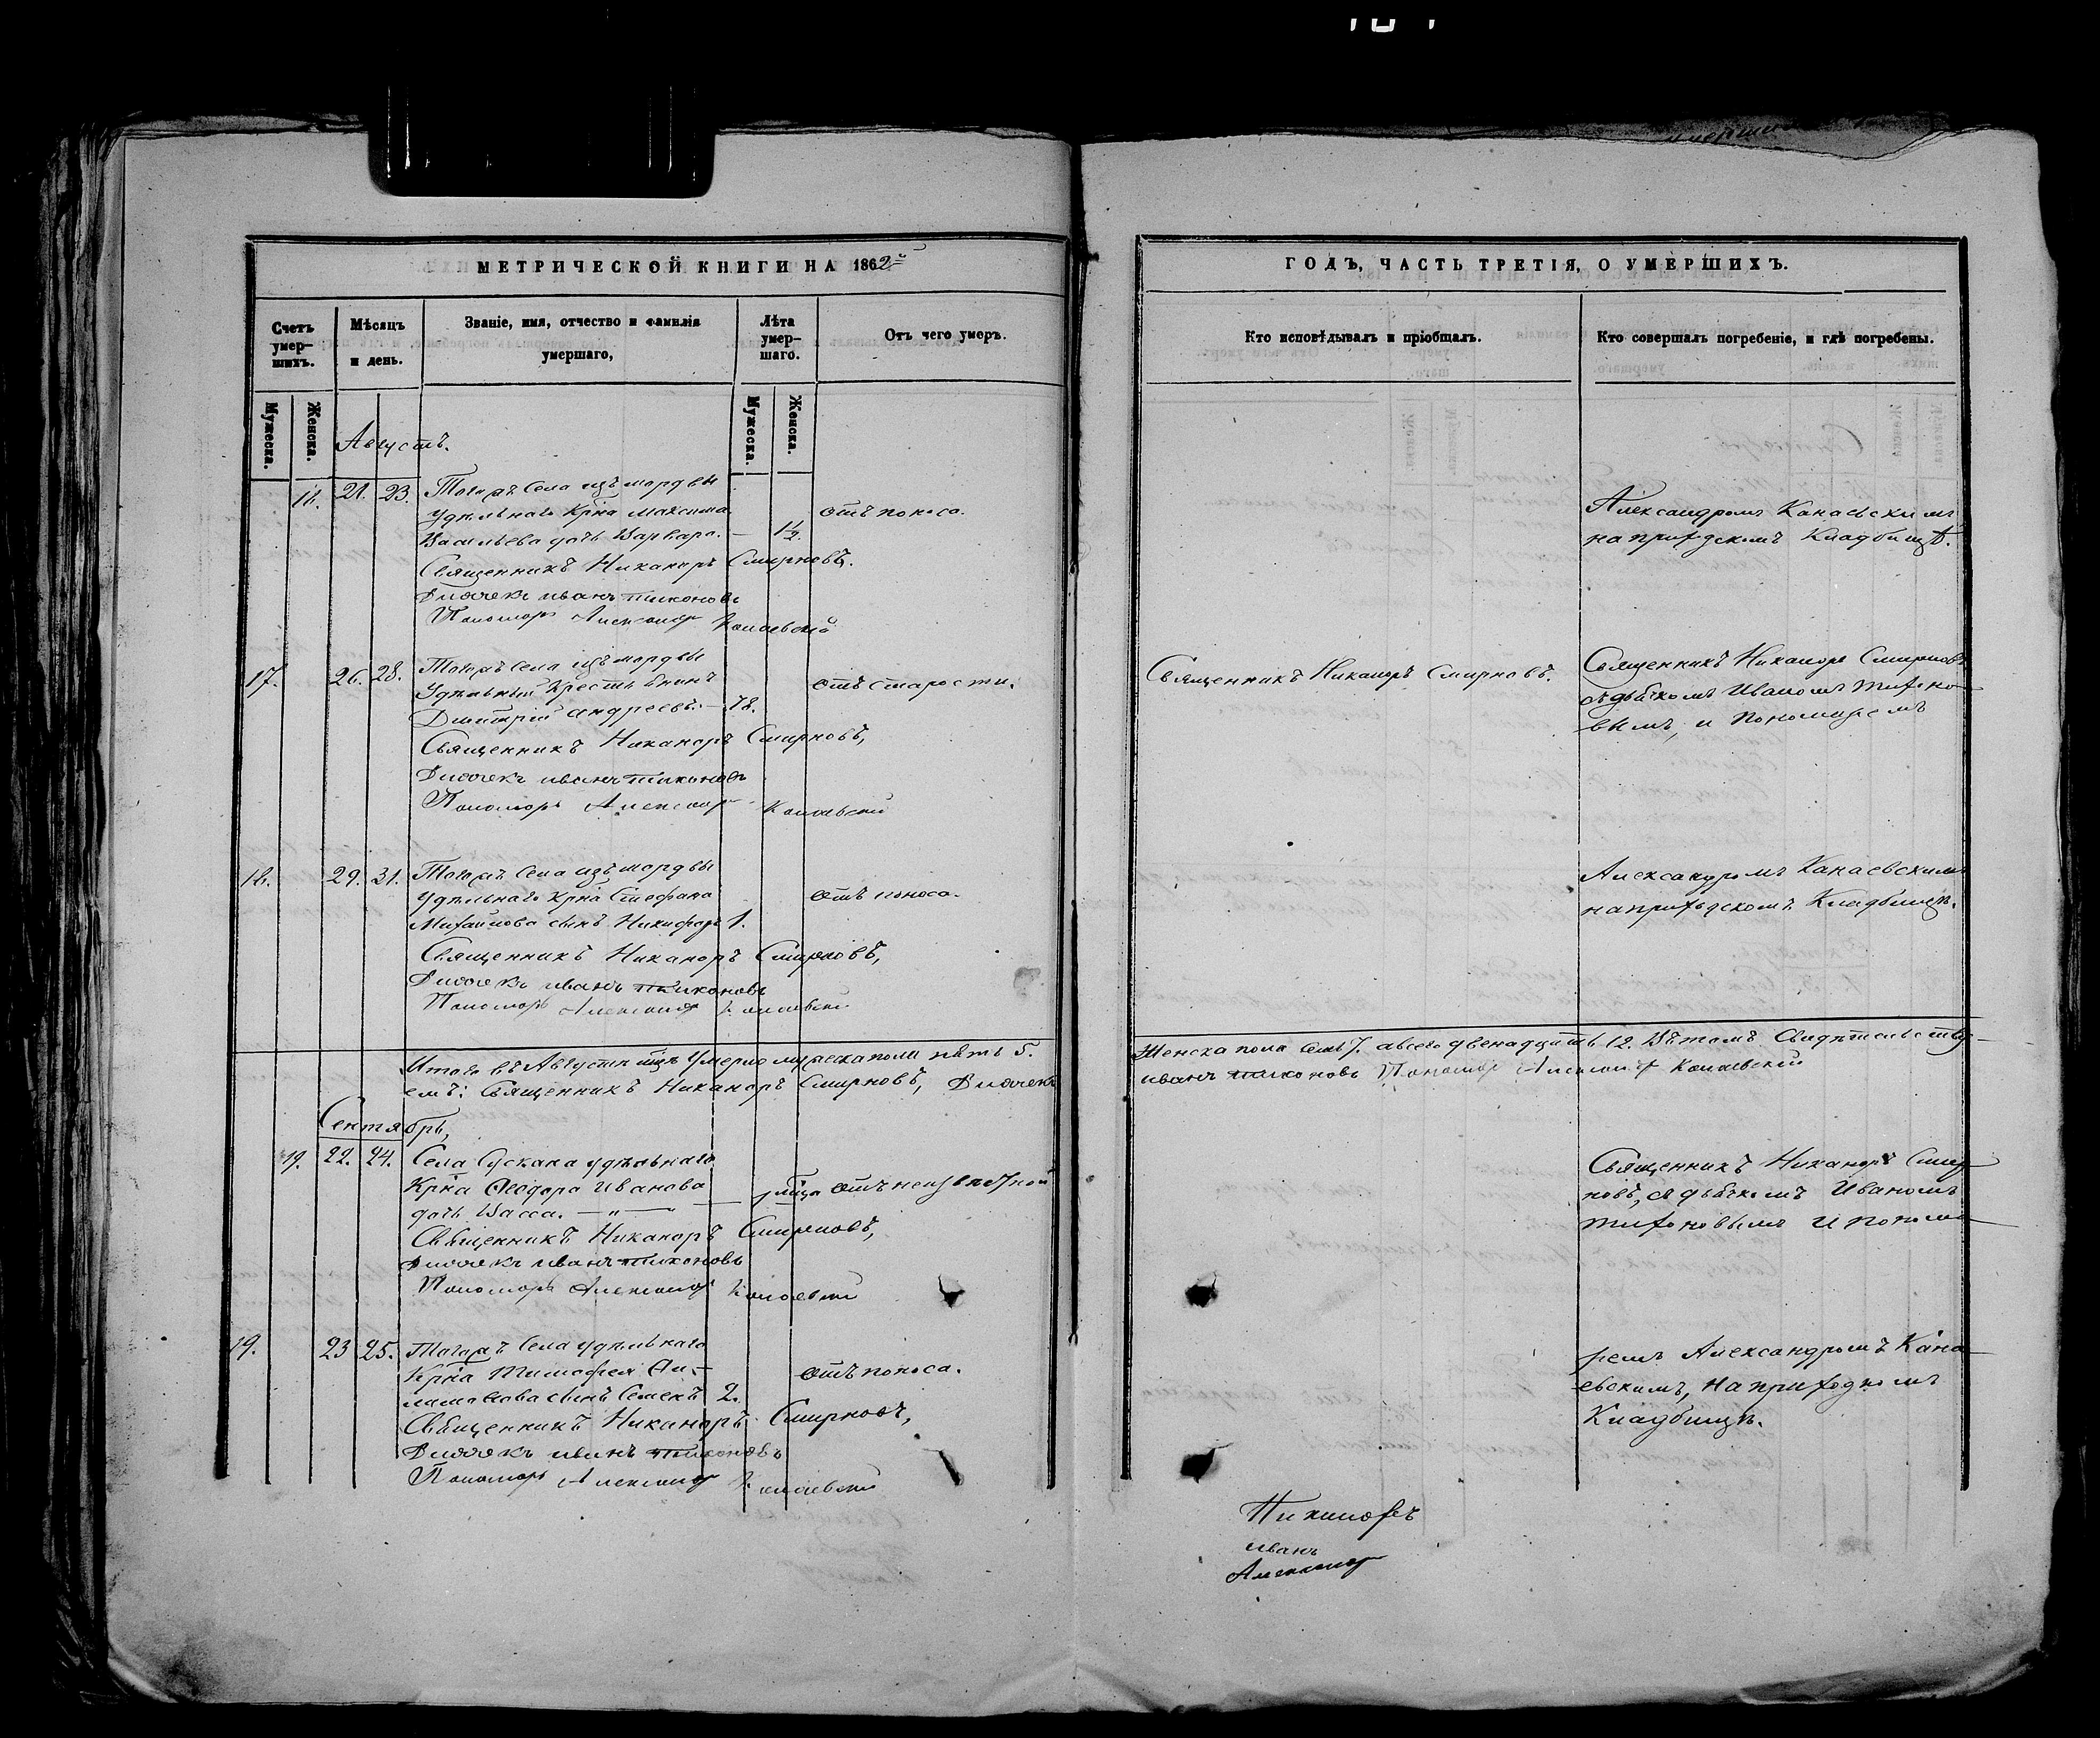 МЕТРИЧЕСКОЙ КНИГИ НА 1862й
Счетъ умер-шихъ.
Мѣсяцъ и день.
Званіе, имя, отчество и фамилія умершаго,
Лѣта умер-шаго.
Отъ чего умеръ.
Мужеска.
Женска.
Мужеска.
Женска.
Августъ.
18. 21. 23. Тогожъ Села изъ мордвы
Удѣльнаго Крна Максима
Васильева дочь Варвара. — 1½. отъ поноса.
Священникъ Никаноръ Смирновъ.
Дьячекъ иванъ тихоновъ
Пономарь Александръ Канаевскій
17. 26. 28. Тогожъ Села изъ мордвы
Удѣльный Крестьянинъ
Дмитрій Андреевъ. — 78. отъ старости.
Священникъ Никаноръ Смирновъ,
Дьячекъ иванъ тихоновъ
Пономарь Александръ Канаевскій
18. 29. 31. Тогожъ Села изъ мордвы
Удѣльнаго Крна Стефана
Михайлова сынъ Никифоръ 1. отъ поноса.
Священникъ Никаноръ Смирновъ,
Дьячекъ иванъ тихоновъ
Пономарь Александръ Канаевскій
Итого въ Августѣ мцѣ Умерло мужеска пола пять 5.
емъ: Священникъ Никаноръ Смирновъ, Дьячекъ
Сентябрь,
19. 22. 24. Села Сускана удѣльнаго
Крна Ѳеодора Иванова
дочь Васса. — отъ неизвѣстной
Священникъ Никаноръ Смирновъ,
Дьячекъ иванъ тихоновъ
Пономарь Александръ Канаевскій
19. 23 25. Тогожъ Села удѣльнаго
Крна Тимофея
сынъ Семенъ 2. отъ поноса.
Священникъ Никаноръ Смирновъ,
Дьячекъ иванъ тихоновъ
Пономарь Александръ Канаевскій
ГОДЪ, ЧАСТЬ ТРЕТІЯ, О УМЕРШИХЪ.
Кто исповѣдывалъ и пріобщалъ.
Кто совершалъ погребеніе, и гдѣ погребены.
Александромъ Канаевскимъ
на приходскомъ Кладбищѣ.
Священникъ Никаноръ Смирновъ.
Священникъ Никаноръ Смирновъ
съ дьячкомъ Иваномъ Тихоно-
вымъ, и пономаремъ
Александромъ Канаевскимъ
на приходскомъ Кладбищѣ.
Женска пола семь 7. а всего двенадцать 12. Въ томъ Свидѣтельству-
иванъ тихоновъ Пономарь Александръ Канаевскій
Священникъ Никаноръ Смир-
новъ, съ дьячкомъ Иваномъ
Тихоновымъ и понома-
ремъ Александромъ Кана-
евскимъ, на приходкомъ
Кладбищѣ.
Никаноръ
иванъ
Александръ